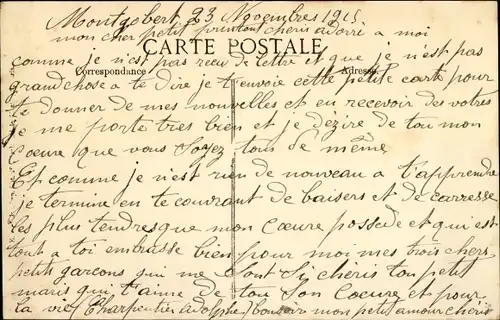 Montgobert, 23 Novembres 1915
mon cher petit printout cheris adorri a moi
CARTE POSTALE
comme je n'est pas recu de lettre et que je n'est pas
Correspondance
Adresse
grand chose a te dire je t'envoie cette petite carte pour
te donner de mes nouvelles et en recevoir des votres
je me porte tres bien et je dezire de tou mon
Coeure que vous soyez tous de même
Et comme je n'est rien de nouveau a t'apprendre
je termine en te couvrant de baisers et de caresse
les plus tendres que mon Coeure possede et qui est
tout a toi embrasse bien pour moi mes trois chers
petits garcons qui me sont si cheris ton petit
maris qui t'aime de tou son Coeure et pour
la vie (Charpentier Adolphe) bonsoir mon petit amour cheris